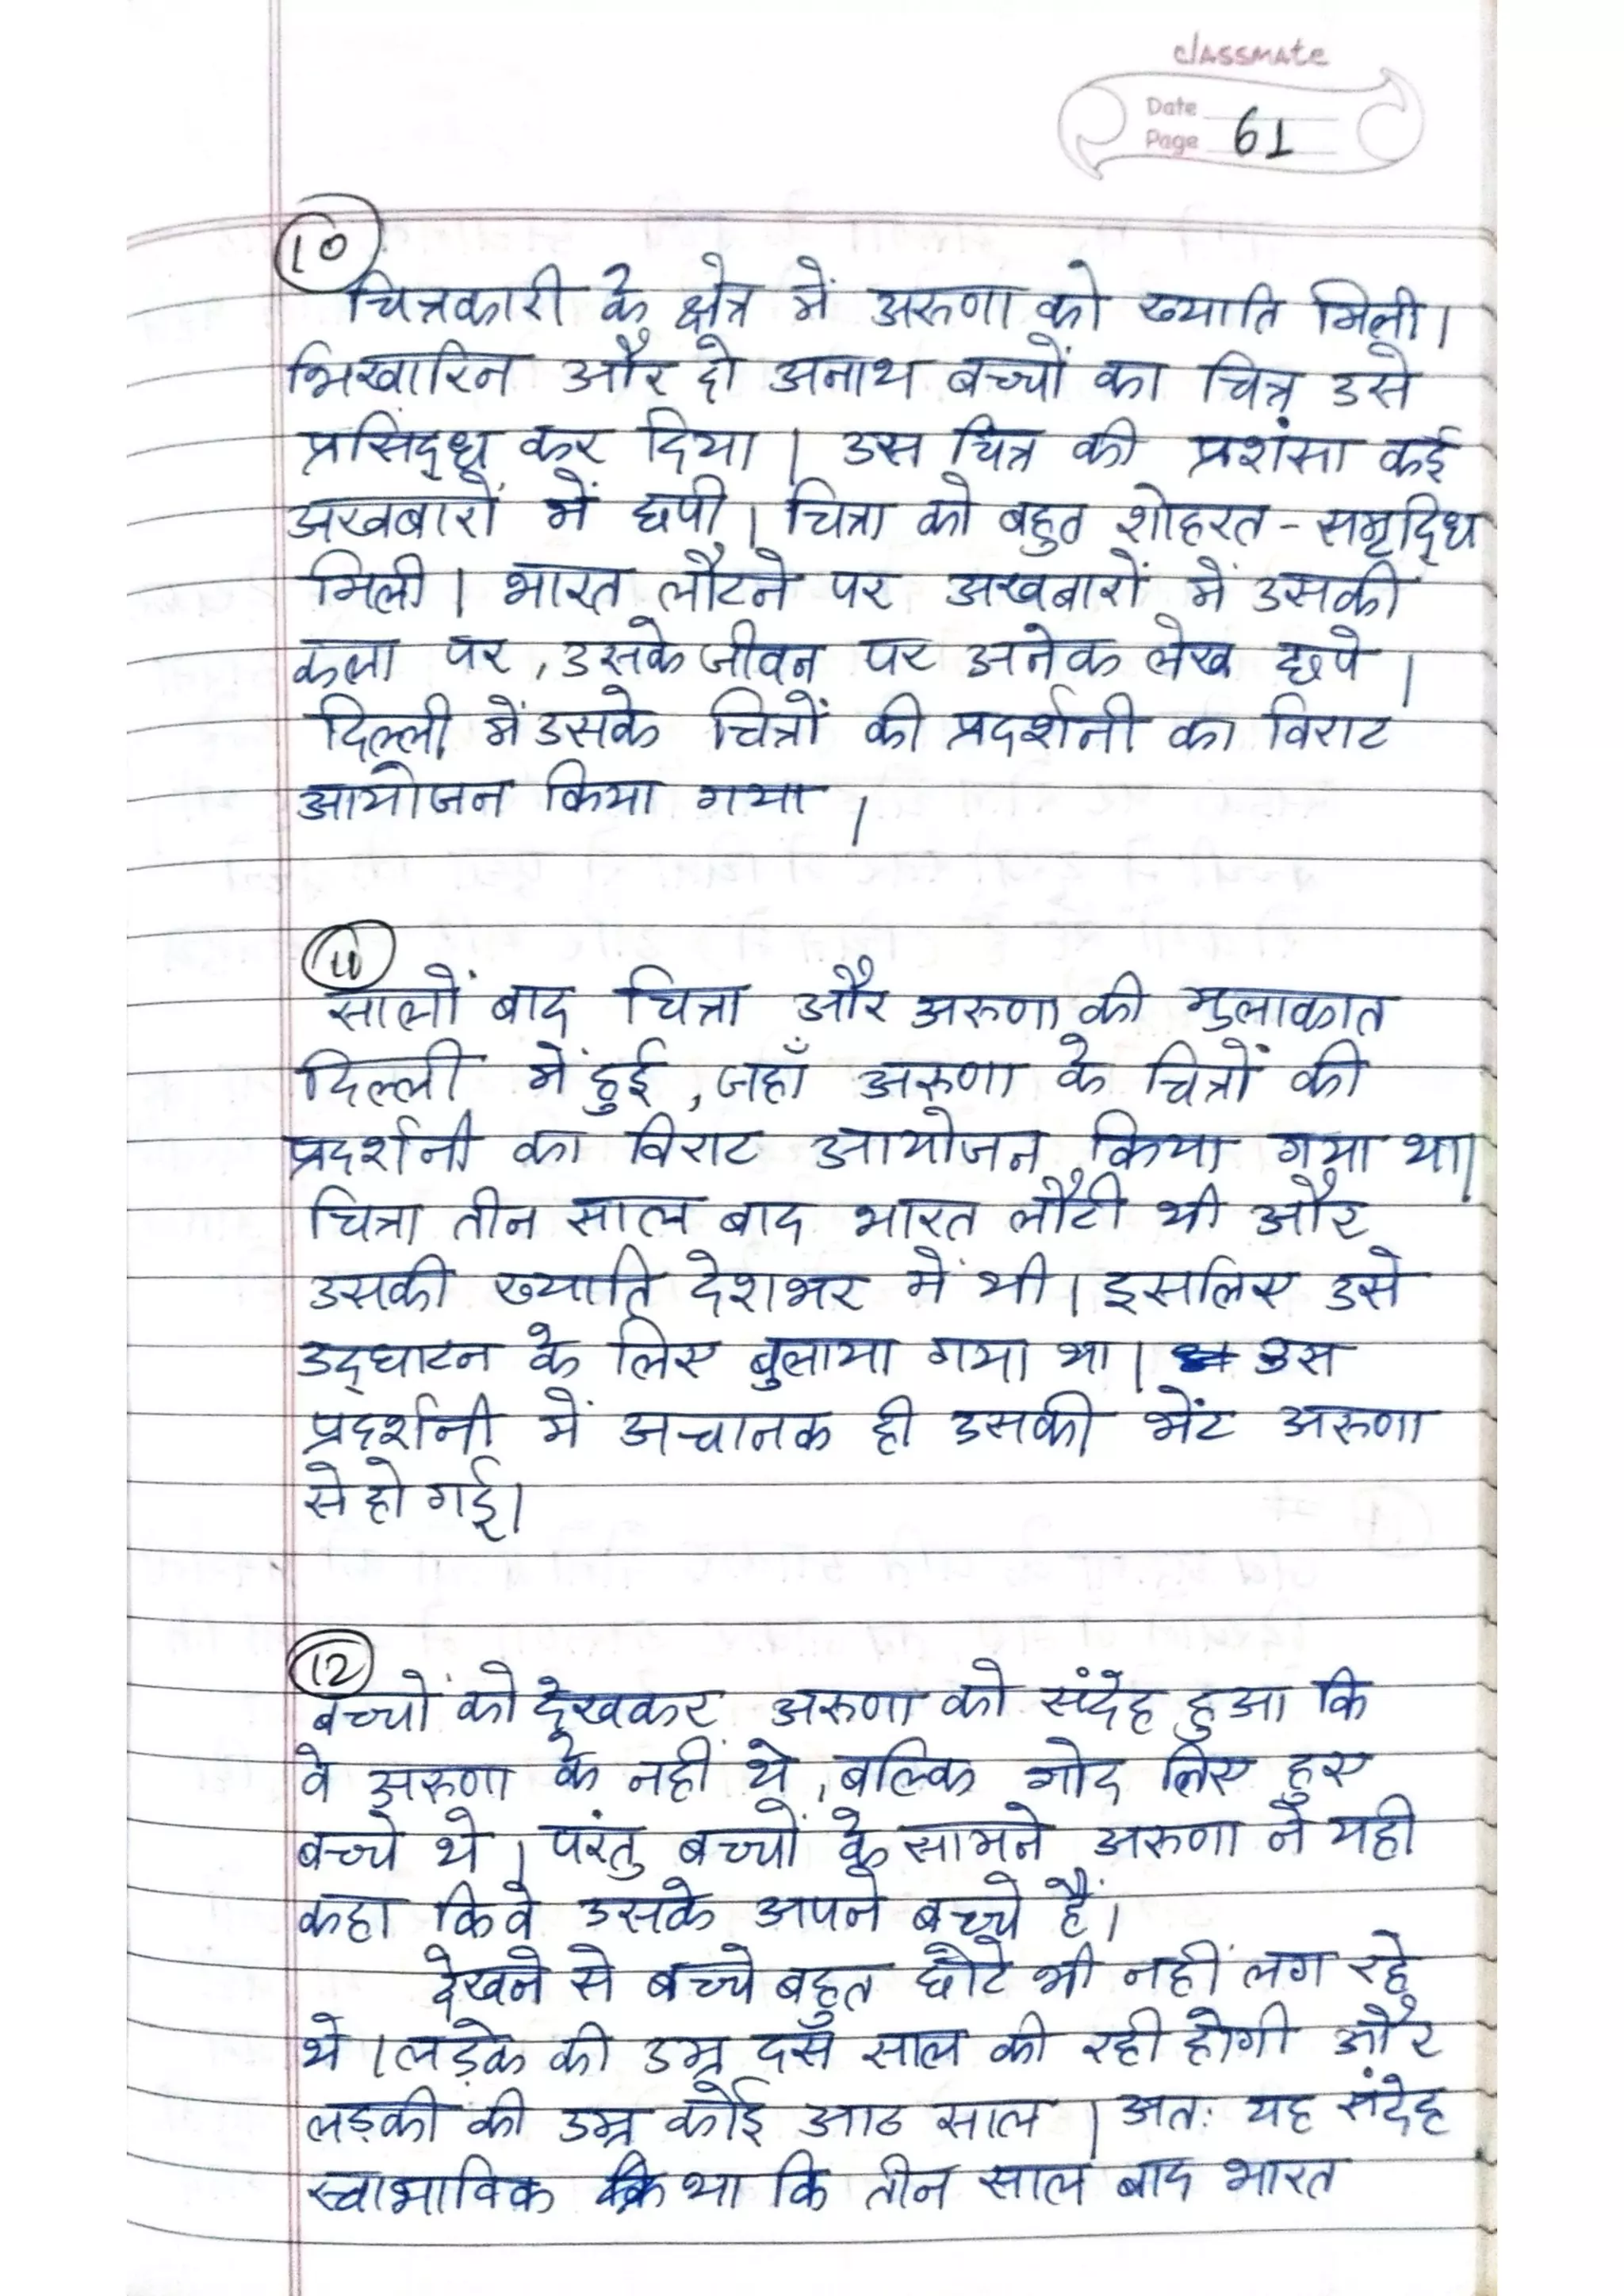 classmate
Date
Page 61
10
चित्रकारी के क्षेत्र में अरुणा को ख्याति मिली।
भिखारिन और दो अनाथ बच्चों का चित्र उसे
प्रसिद्ध कर दिया। उस चित्र की प्रशंसा कई
अखबारों में छपी। चित्रा को बहुत शोहरत - समृद्धि
मिली। भारत लौटने पर अखबारों में उसकी
कला पर, उसके जीवन पर अनेक लेख छपे।
दिल्ली में उसके चित्रों की प्रदर्शनी का विराट
आयोजन किया गया।
11
सालों बाद चित्रा और अरुणा की मुलाकात
दिल्ली में हुई, जहाँ अरुणा के चित्रों की
प्रदर्शनी का विराट आयोजन किया गया था।
चित्रा तीन साल बाद भारत लौटी थी और
उसकी ख्याति देशभर में थी। इसलिए उसे
उद्घाटन के लिए बुलाया गया था। उस
प्रदर्शनी में अचानक ही उसकी भेंट अरुणा
से हो गई।
12
बच्चों को देखकर अरुणा को संदेह हुआ कि
वे अरुणा के नहीं थे, बल्कि गोद लिए हुए
बच्चे थे। परंतु बच्चों के सामने अरुणा ने यही
कहा कि वे उसके अपने बच्चे हैं।
देखने से बच्चे बहुत छोटे भी नहीं लग रहे
थे। लड़के की उम्र दस साल की रही होगी और
लड़की की उम्र कोई आठ साल। अतः यह संदेह
स्वाभाविक था कि तीन साल बाद भारत